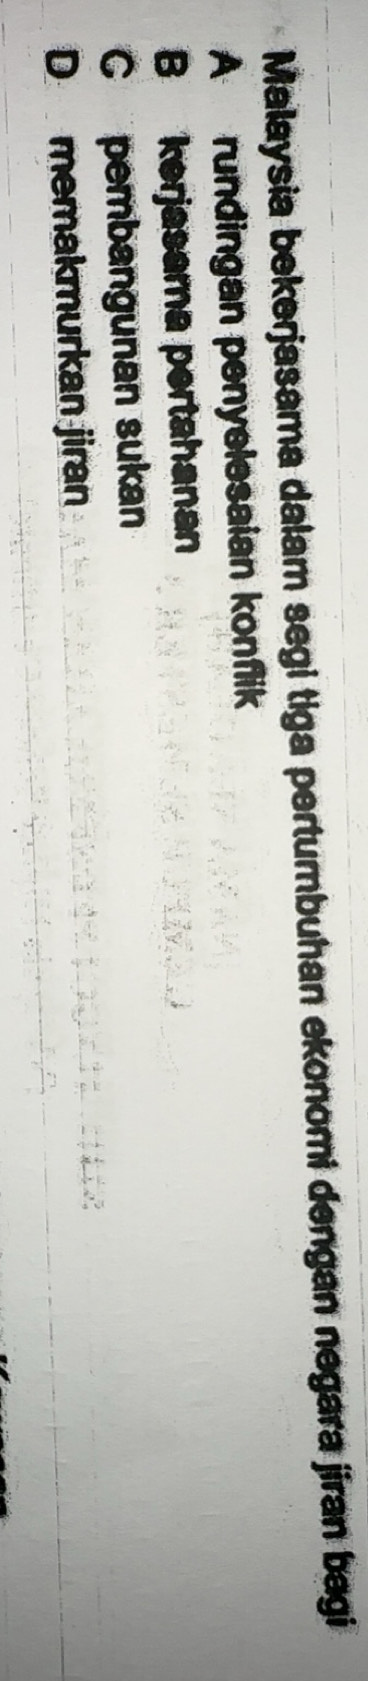 Malaysia bekerjasama dalam segi tiga pertumbuhan ekonomi dengan negara jiran bagi
A rundingan penyelesaian konflik
B kerjasama pertahanan
C pembangunan sukan
D memakmurkan jiran